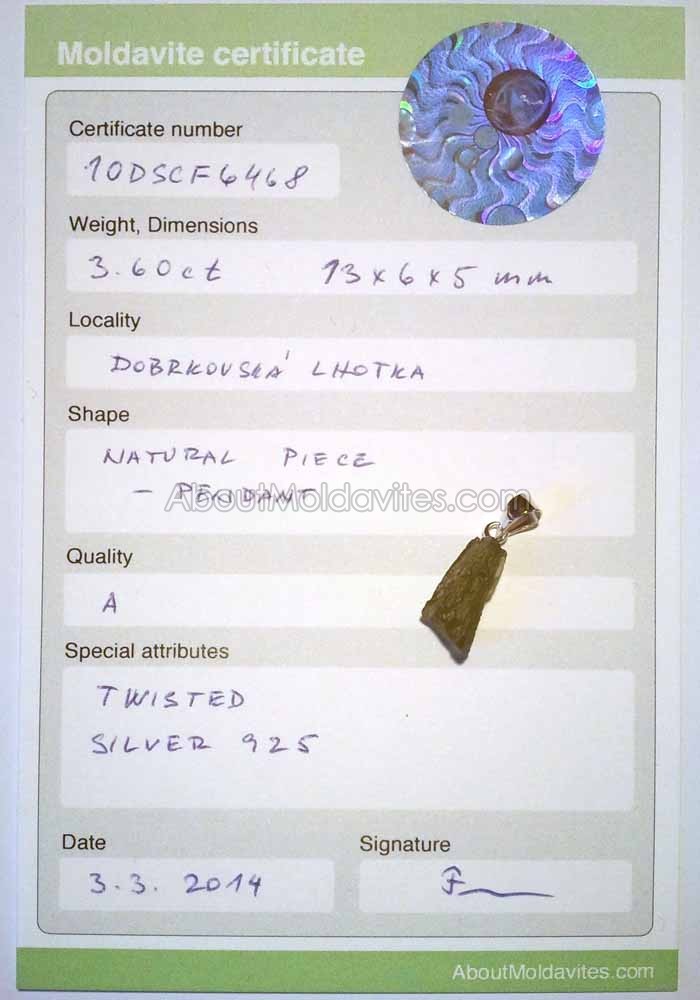 Moldavite certificate
Certificate number
10DSCF6468
Weight, Dimensions
3.60ct 13x6x5 mm
Locality
DOBRKOVSKÁ LHOTKA
Shape
NATURAL PIECE
- PENDANT
AboutMoldavites.com
Quality
A
Special attributes
TWISTED
SILVER 925
Date
3.3. 2014
Signature
AboutMoldavites.com